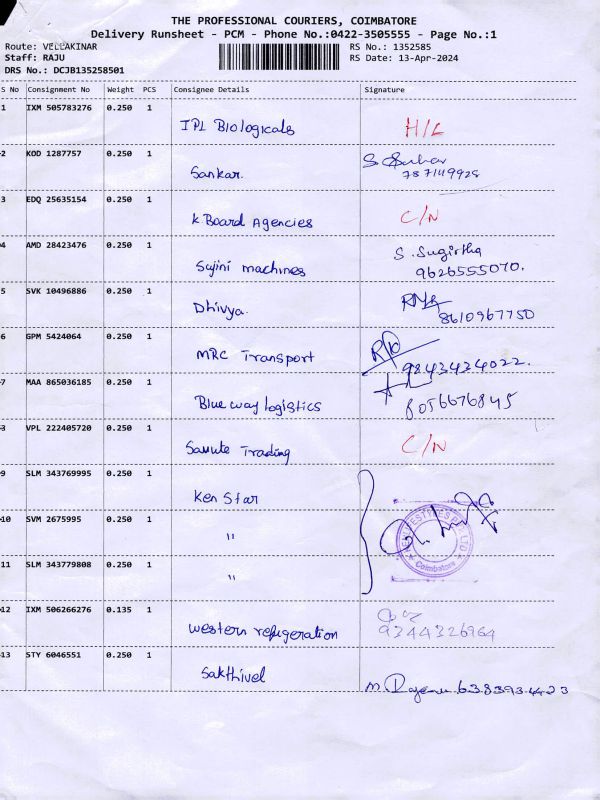 THE PROFESSIONAL COURIERS, COIMBATORE
Delivery Runsheet - PCM - Phone No.:0422-3505555 - Page No.:1
Route: VELLAKINAR RS No.: 1352585
Staff: RAJU RS Date: 13-Apr-2024
DRS No.: DCJB135258501
S No Consignment No Weight PCS Consignee Details Signature
1 IXM 505783276 0.250 1
IPL Biologicals H/L
2 KOD 1287757 0.250 1
Sankar. 787149925
3 EDQ 25635154 0.250 1
K Board Agencies C/N
4 AMD 28423476 0.250 1 S. Sugirtha
Sujini machines 9626555070.
5 SVK 10496886 0.250 1
Dhivya. 8610967750
6 GPM 5424064 0.250 1
MRC Transport 9843434022.
7 MAA 865036185 0.250 1
Blue way logistics 8056676845
8 VPL 222405720 0.250 1
Trading C/N
9 SLM 343769995 0.250 1
Ken Star
10 SVM 2675995 0.250 1
"
11 SLM 343779808 0.250 1
"
Coimbatore
12 IXM 506266276 0.135 1
western refigeration 9344326964
13 STY 6046551 0.250 1
Sakthivel 6383934423